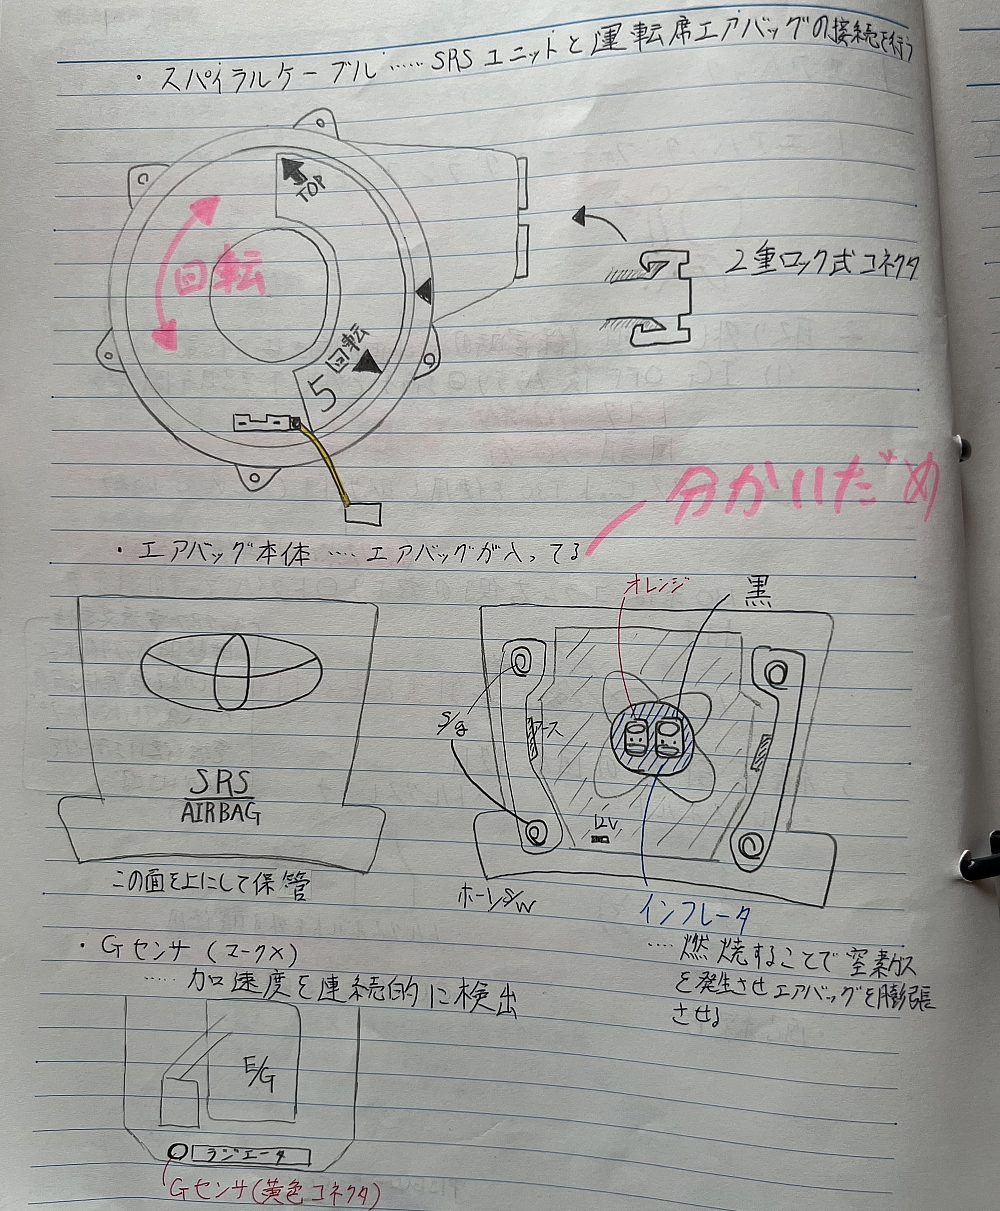 ・スパイラルケーブル……SRSユニットと運転席エアバッグの接続を行う
TOP
回転
5回転
2重ロック式コネクタ
分かいだめ
・エアバッグ本体……エアバッグが入ってる
オレンジ
黒
ケース
SRS
AIRBAG
12V
この面を上にして保管
ホーンS/W
インフレータ
……燃焼することで窒素ガス
を発生させエアバッグを膨張
させる
・Gセンサ(マークX)
……加速度を連続的に検出
E/G
ラジエータ
Gセンサ(黄色コネクタ)